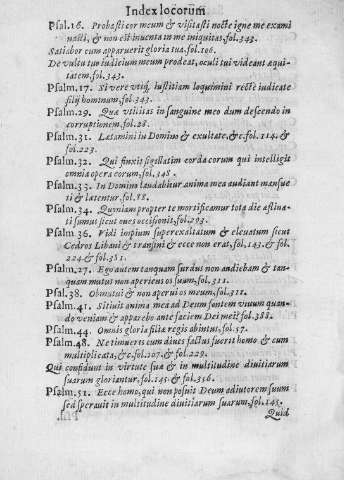 Index locorum
Psal.16. Probasti cor meum & visitasti nocte igne me exami
nasti, & non est inuenta in me iniquitas, fol.343.
Satiabor cum apparuerit gloria tua, fol.106.
De vultu tuo iudicium meum prodeat, oculi tui videant æqui-
tatem, fol.343.
Psalm.17. Si vere vtiq; iustitiam loquimini rectè iudicate
filij hominum, fol.343.
Psalm.29. Quæ vtilitas in sanguine meo dum descendo in
corruptionem, fol.28.
Psalm.31. Lætamini in Domino & exultate, &c. fol.114. &
fol.223.
Psalm.32. Qui finxit sigillatim corda eorum qui intelligit
omnia opera eorum, fol.348.
Psalm.33. In Domino laudabitur anima mea audiant mansue
ti & lætentur, fol.88.
Psalm.34. Quoniam propter te mortificamur tota die æstima-
ti sumus sicut oues occisionis, fol.293.
Psalm.36. Vidi impium superexaltatum & eleuatum sicut
Cedros Libani & transiui & ecce non erat, fol.143. & fol.
224. & fol.351.
Psalm.27. Ego autem tanquam surdus non audiebam & tan-
quam mutus non aperiens os suum, fol.311.
Psal.38. Obmutui & non aperui os meum, fol.311.
Psalm.41. Sitiuit anima mea ad Deum fontem viuum quan-
do veniam & apparebo ante faciem Dei mei? fol.388.
Psalm.44. Omnis gloria filiæ regis abintus, fol.57.
Psalm.48. Ne timueris cum diues factus fuerit homo & cum
multiplicata, &c. fol.207. & fol.229.
Qui confidunt in virtute sua & in multitudine diuitiarum
suarum gloriantur, fol.145. & fol.356.
Psalm.51. Ecce homo, qui non posuit Deum adiutorem suum
sed sperauit in multitudine diuitiarum suarum, fol.145.
Quid